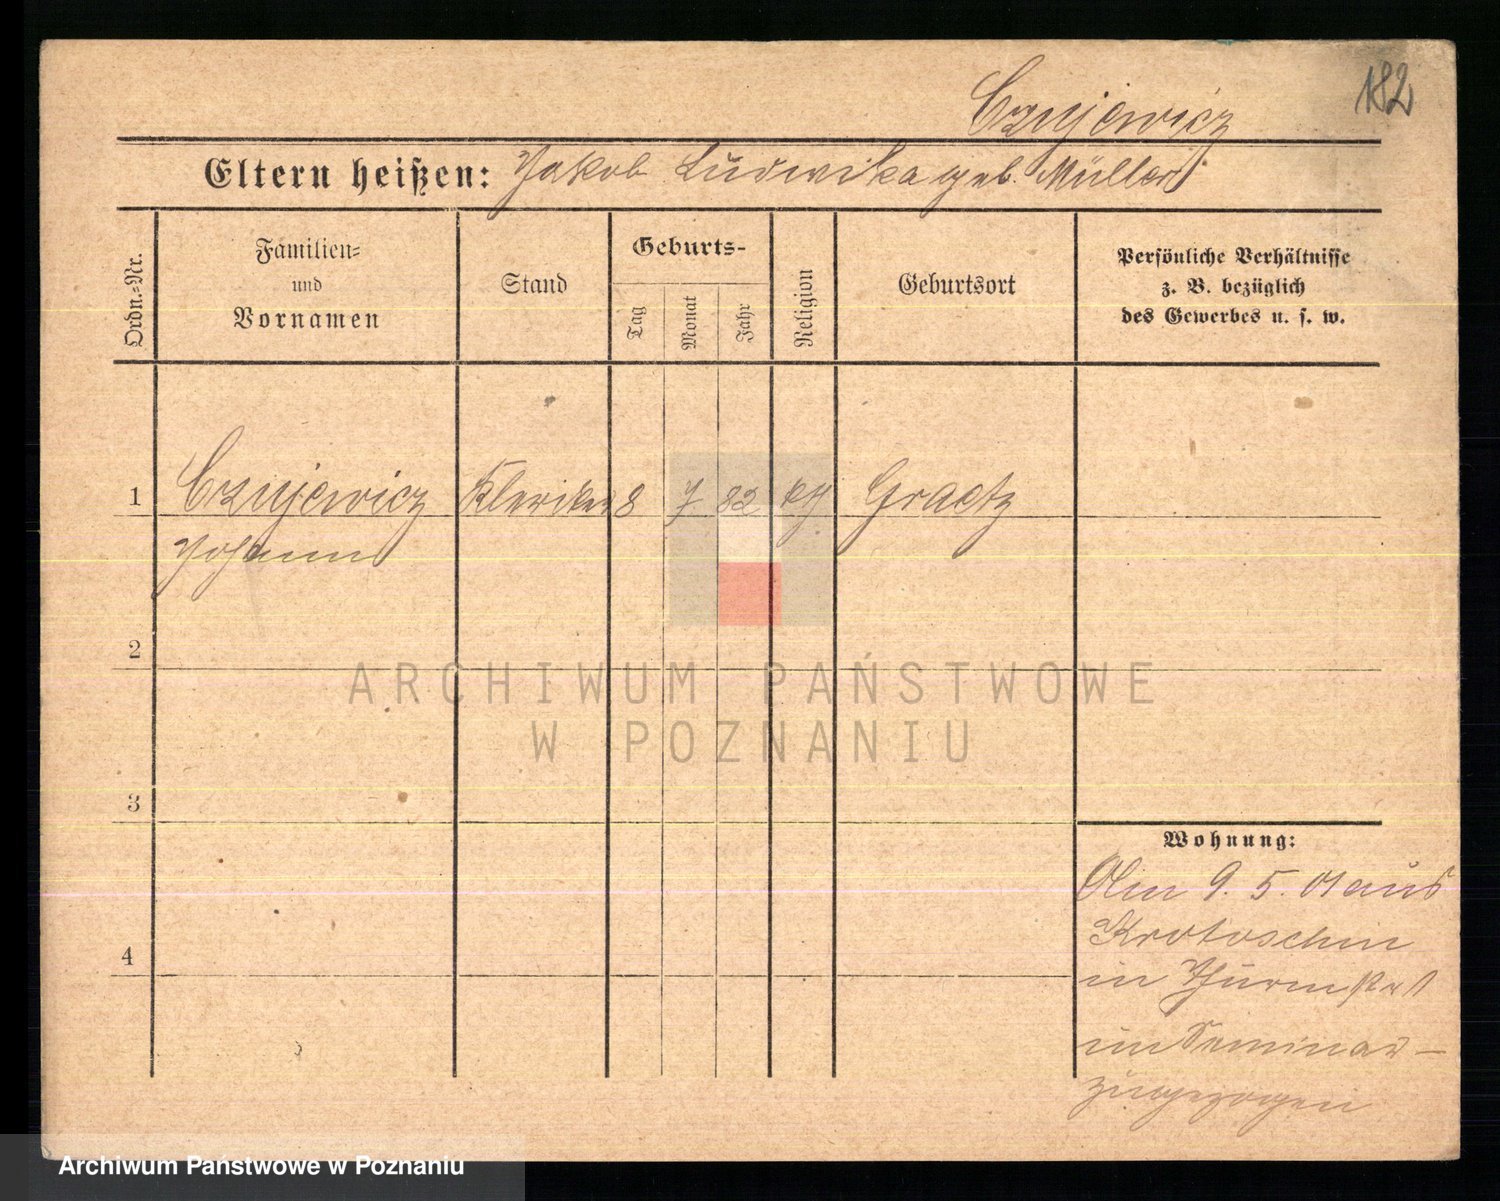 182
Czujewicz
Eltern heißen: Jakob Ludwika geb. Müller
Ordn.-Nr.
Familien-
und
Vornamen
Stand
Geburts-
Tag
Monat
Jahr
Religion
Geburtsort
Persönliche Verhältnisse
z. B. bezüglich
des Gewerbes u. s. w.
1 Czujewicz Kleriker 8 7 82 kth Graetz
Johann
2
ARCHIWUM PAŃSTWOWE
W POZNANIU
3
Wohnung:
Am 9. 5. 01 aus
Krotoschin
4
in Thurmstr 1
im Seminar –
zugezogen
Archiwum Państwowe w Poznaniu